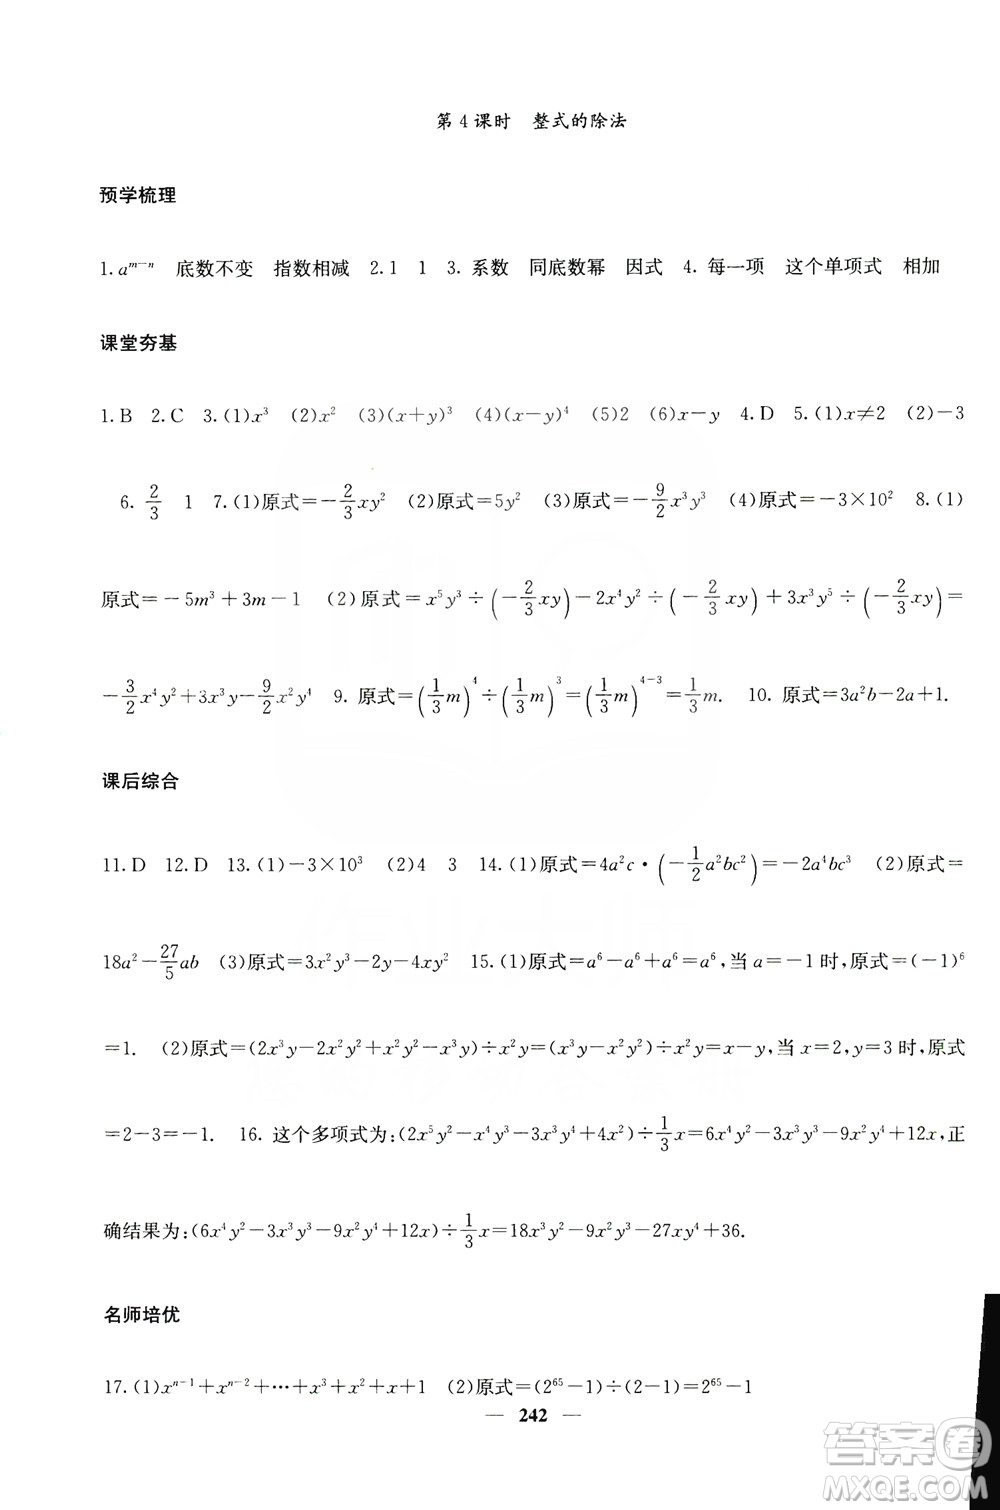 第4课时　整式的除法
预学梳理
1.a^{m-n}　底数不变　指数相减　2.1　1　3.系数　同底数幂　因式　4.每一项　这个单项式　相加
课堂夯基
1.B　2.C　3.(1)x³　(2)x²　(3)(x+y)³　(4)(x-y)⁴　(5)2　(6)x-y　4.D　5.(1)x≠2　(2)-3
6.\frac{2}{3}　1　7.(1)原式=-\frac{2}{3}xy²　(2)原式=5y²　(3)原式=-\frac{9}{2}x³y³　(4)原式=-3×10²　8.(1)
原式=-5m³+3m-1　(2)原式=x⁵y³÷(-\frac{2}{3}xy)-2x⁴y²÷(-\frac{2}{3}xy)+3x³y⁵÷(-\frac{2}{3}xy)=
-\frac{3}{2}x⁴y²+3x³y-\frac{9}{2}x²y⁴　9.原式=(\frac{1}{3}m)⁴÷(\frac{1}{3}m)³=(\frac{1}{3}m)^{4-3}=\frac{1}{3}m.　10.原式=3a²b-2a+1.
课后综合
11.D　12.D　13.(1)-3×10³　(2)4　3　14.(1)原式=4a²c·(-\frac{1}{2}a²bc²)=-2a⁴bc³　(2)原式=
18a²-\frac{27}{5}ab　(3)原式=3x²y³-2y-4xy²　15.(1)原式=a⁶-a⁶+a⁶=a⁶,当a=-1时,原式=(-1)⁶
=1.　(2)原式=(2x³y-2x²y²+x²y²-x³y)÷x²y=(x³y-x²y²)÷x²y=x-y,当x=2,y=3时,原式
=2-3=-1.　16.这个多项式为:(2x⁵y²-x⁴y³-3x³y⁴+4x²)÷\frac{1}{3}x=6x⁴y²-3x³y³-9x²y⁴+12x,正
确结果为:(6x⁴y²-3x³y³-9x²y⁴+12x)÷\frac{1}{3}x=18x³y²-9x²y³-27xy⁴+36.
名师培优
17.(1)x^{n-1}+x^{n-2}+…+x³+x²+x+1　(2)原式=(2⁶⁵-1)÷(2-1)=2⁶⁵-1
— 242 —
答案圈
MXQE.COM